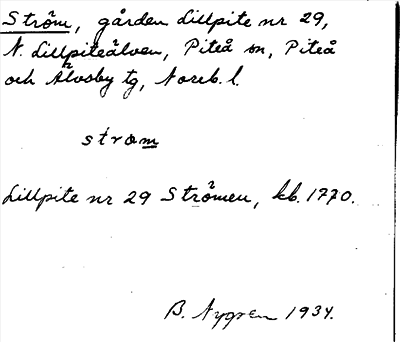 Ström, gården Lillpite nr 29,
N. Lillpiteälven, Piteå sn, Piteå
och Älvsby tg, Norrb. l.
strøm
Lillpite nr 29 Strömen, kb. 1770.
B. Nygren 1934.